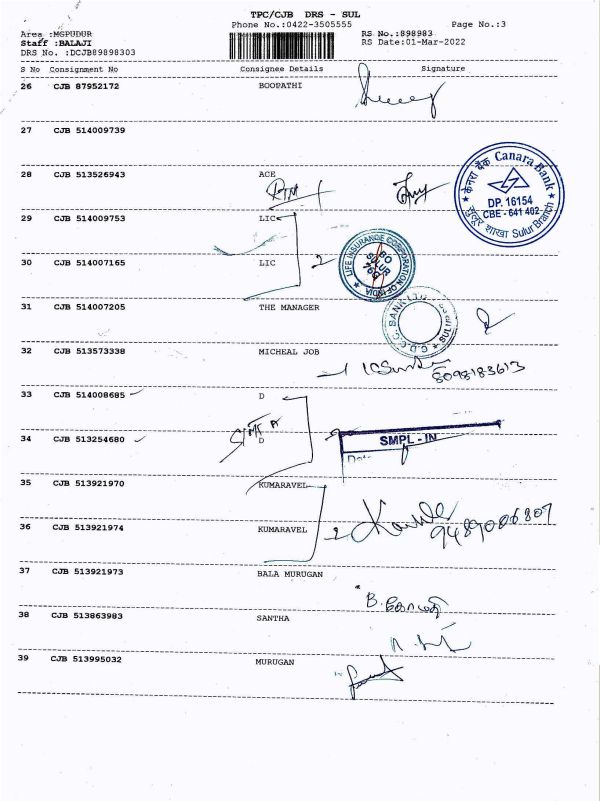 TPC/CJB DRS - SUL
Phone No.:0422-3505555
Page No.:3
Area :MGPUDUR
RS No.:898983
Staff :BALAJI
RS Date:01-Mar-2022
DRS No. :DCJB89898303
S No Consignment No Consignee Details Signature
26 CJB 87952172 BOOPATHI
27 CJB 514009739
केनरा बैंक Canara Bank
DP. 16154
CBE - 641 402
सुलूर शाखा Sulur Branch
28 CJB 513526943 ACE
RTN
29 CJB 514009753 LIC
30 CJB 514007165 LIC
2
LIFE INSURANCE CORPORATION OF INDIA
SO
SULUR
76G
31 CJB 514007205 THE MANAGER
C.D.C.C. BANK LTD
SULUR
32 CJB 513573338 MICHEAL JOB
8098183613
33 CJB 514008685 D
34 CJB 513254680 D
2
SMPL - IN
Date
35 CJB 513921970 KUMARAVEL
36 CJB 513921974 KUMARAVEL
2
9489006807
37 CJB 513921973 BALA MURUGAN
B. கோமதி
38 CJB 513863983 SANTHA
39 CJB 513995032 MURUGAN